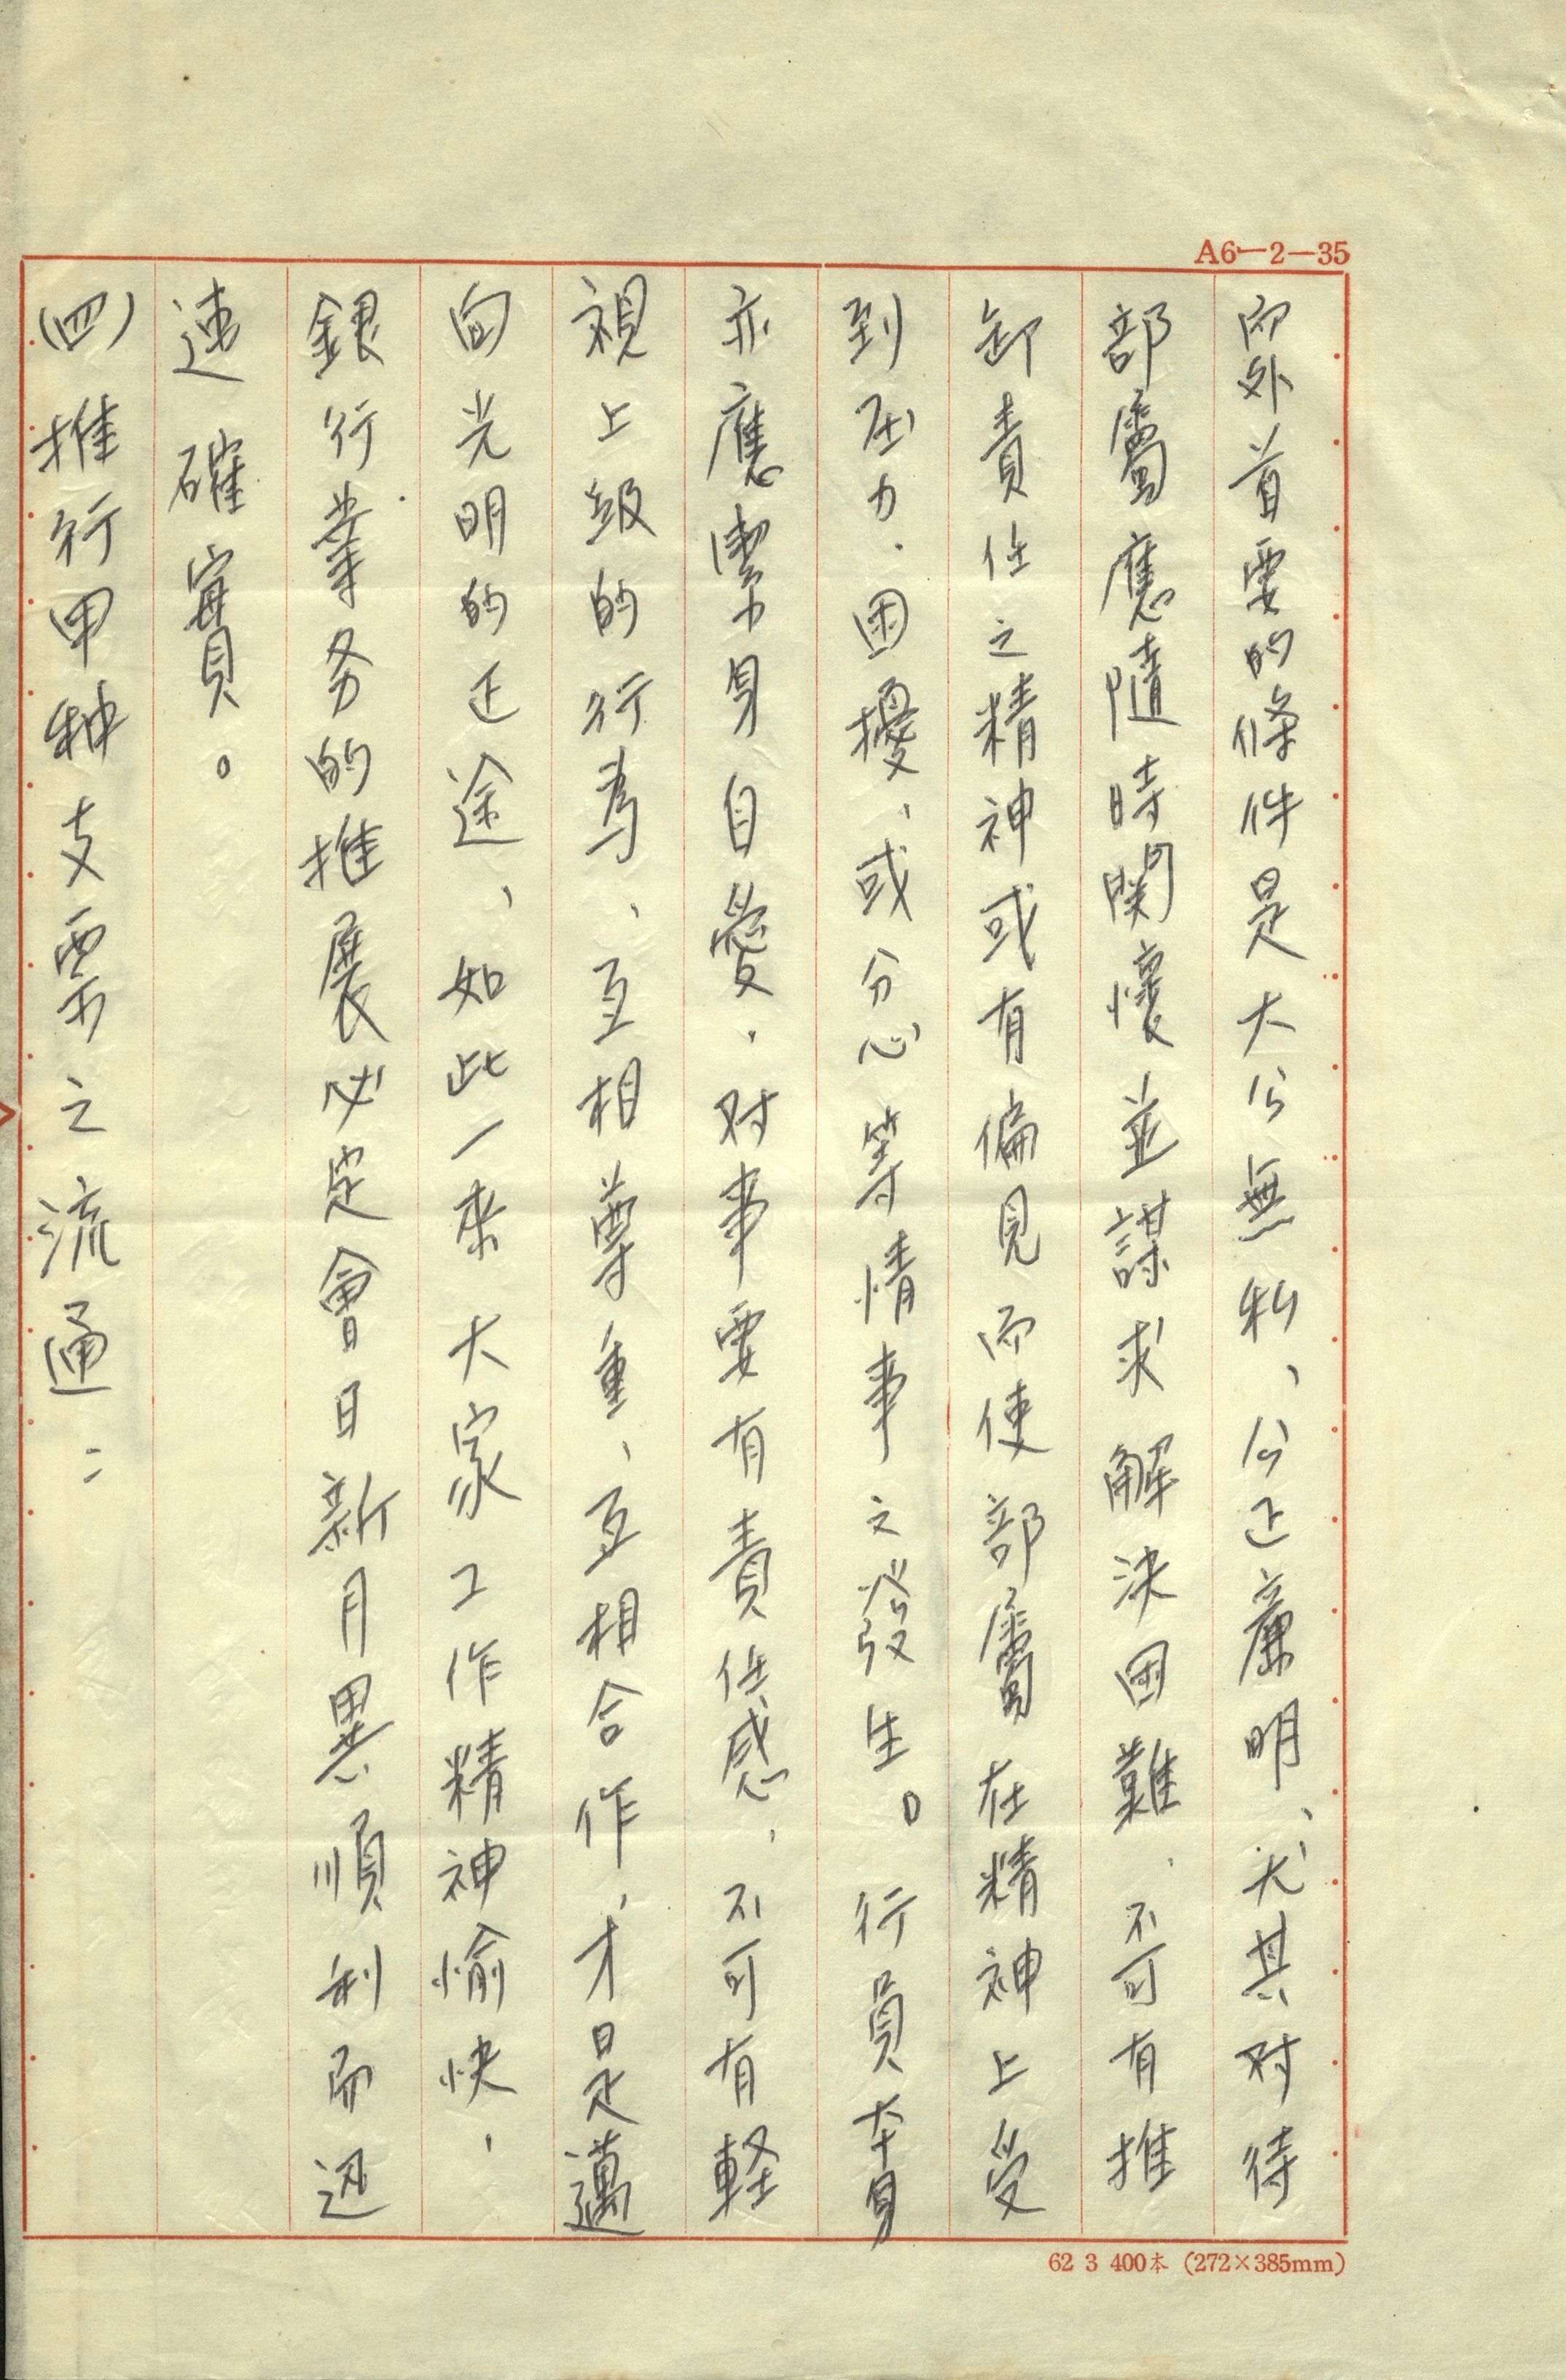 A6—2—35
而外首要的條件是大公無私、公正廉明、尤其对待
部屬應隨時関懷並謀求解決困難、不可有推
卸責任之精神或有偏見而使部屬在精神上受
到压力、困擾、或分心等情事之發生。行員本身
亦應潔身自愛、对事要有責任感、不可有軽
視上級的行為、互相尊重、互相合作、才是邁
向光明的正途、如此一來大家工作精神愉快、
銀行業务的推展必定會日新月異順利而迅
速確實。
(四)推行甲种支票之流通：
62 3 400本 (272×385mm)